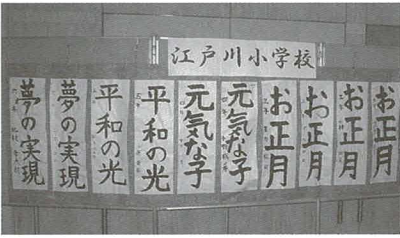 江戸川小学校
お正月
お正月
お正月
お正月
元気な子
元気な子
平和の光
平和の光
夢の実現
夢の実現